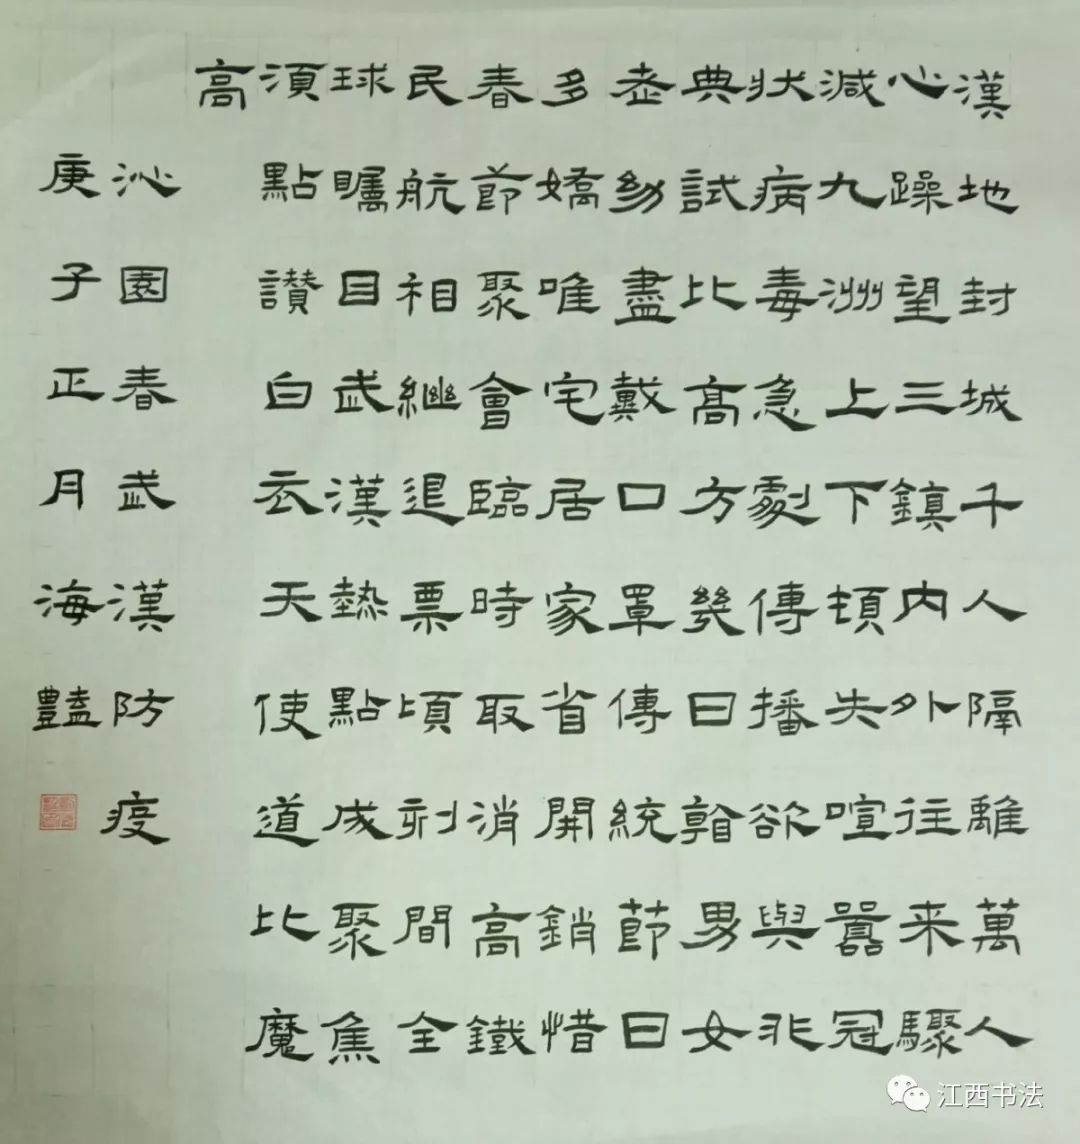 漢地封城千人隔離萬人
心躁望三鎮内外往来驟
減九洲上下頓失喧囂冠
状病毒急劇傳播欲與非
典試比高方幾日男女
老幼盡戴口罩傳統節日
多嬌唯宅居家省開銷惜
春節聚會臨時取消高鐵
民航相繼退票頃刻間全
球矚目武漢熱點成聚焦
湏點讃白衣天使道比魔
高
沁園春武漢防疫
庚子正月海豔
江西书法